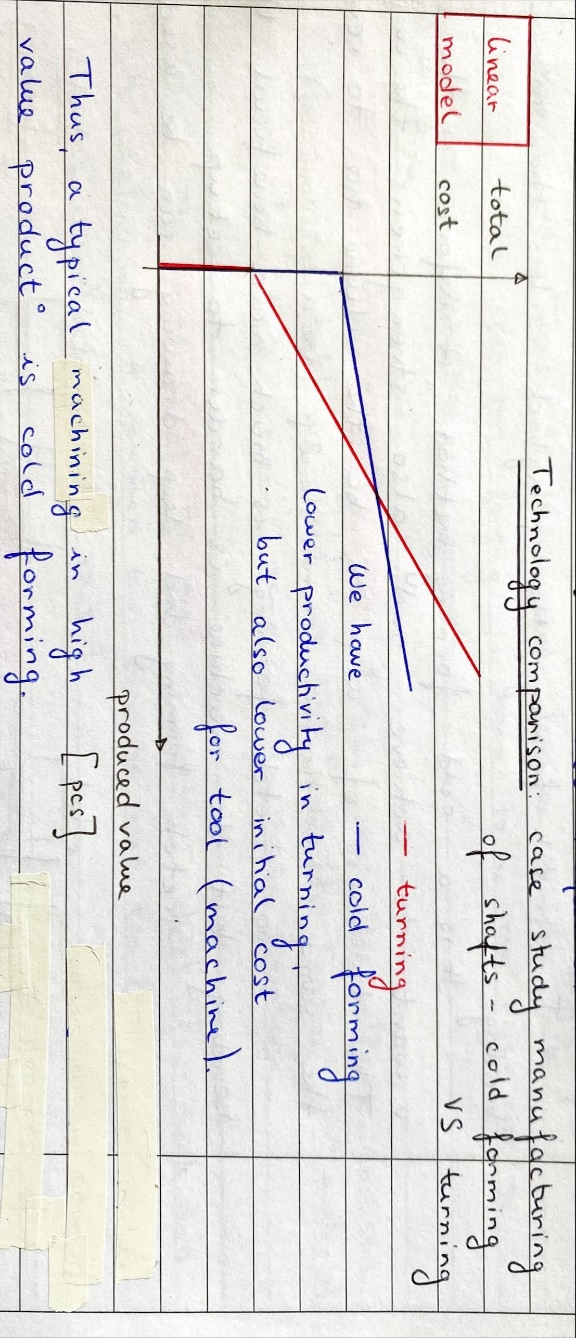 Technology comparison: case study manufacturing
of shafts - cold forming
vs turning
linear
model
total
cost
— turning
— cold forming
We have
lower productivity in turning,
but also lower initial cost
for tool (machine).
produced value
[pcs]
Thus, a typical machining in high
value product° is cold forming.